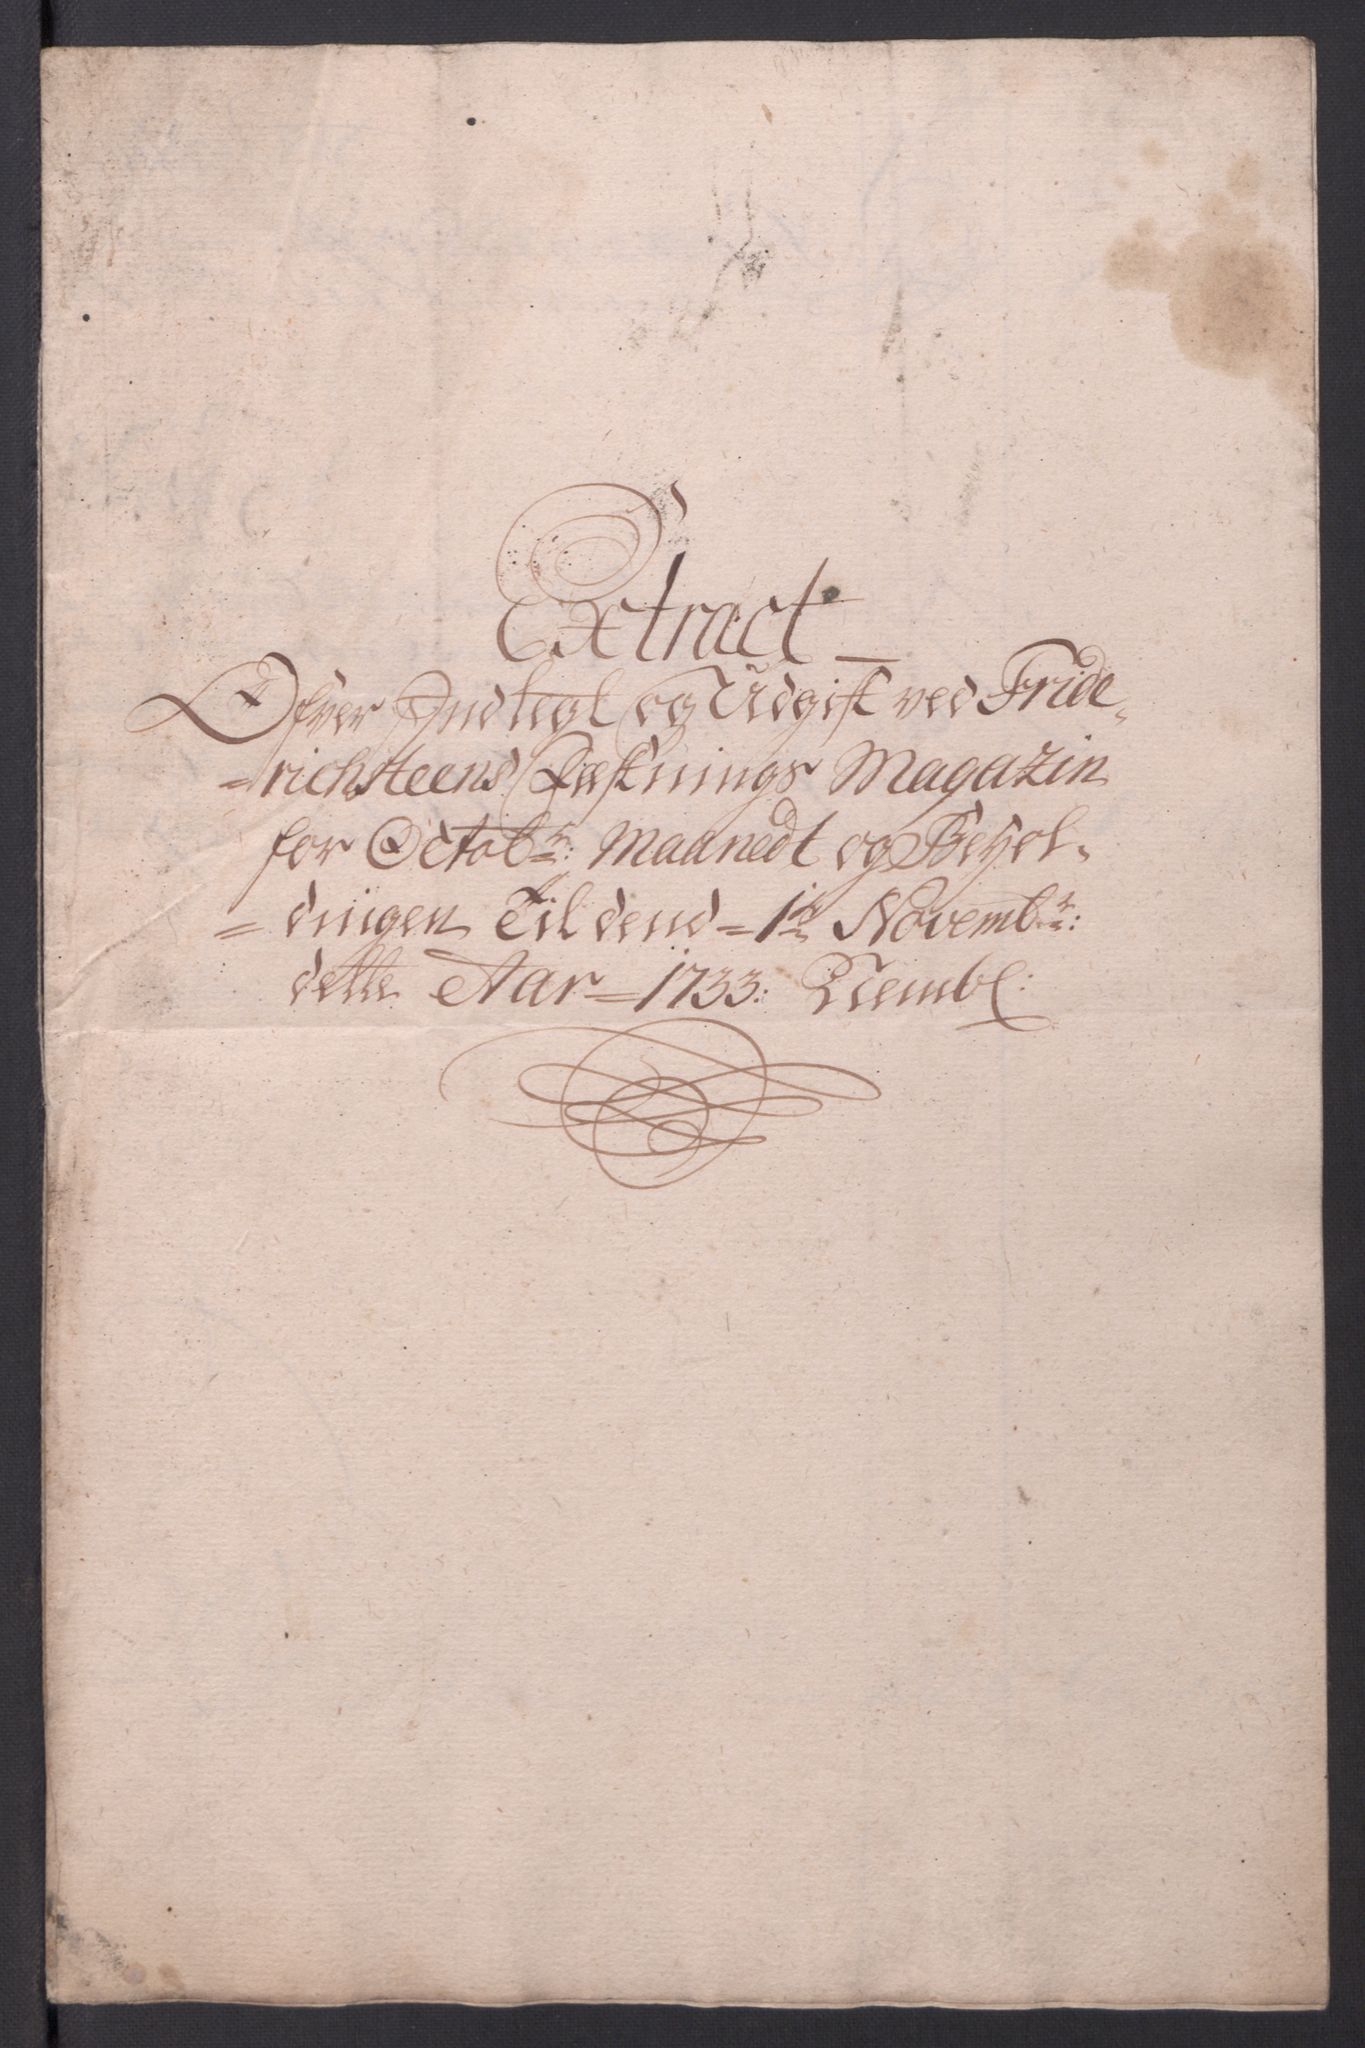 Extract
Ofver Indtegt og Udgift ved Fride-
=richsteens Fæstnings Magazin
for Octobr: Maanedt og Behol-
=dningen Til dend 1te Novembr:
dette Aar 1733: